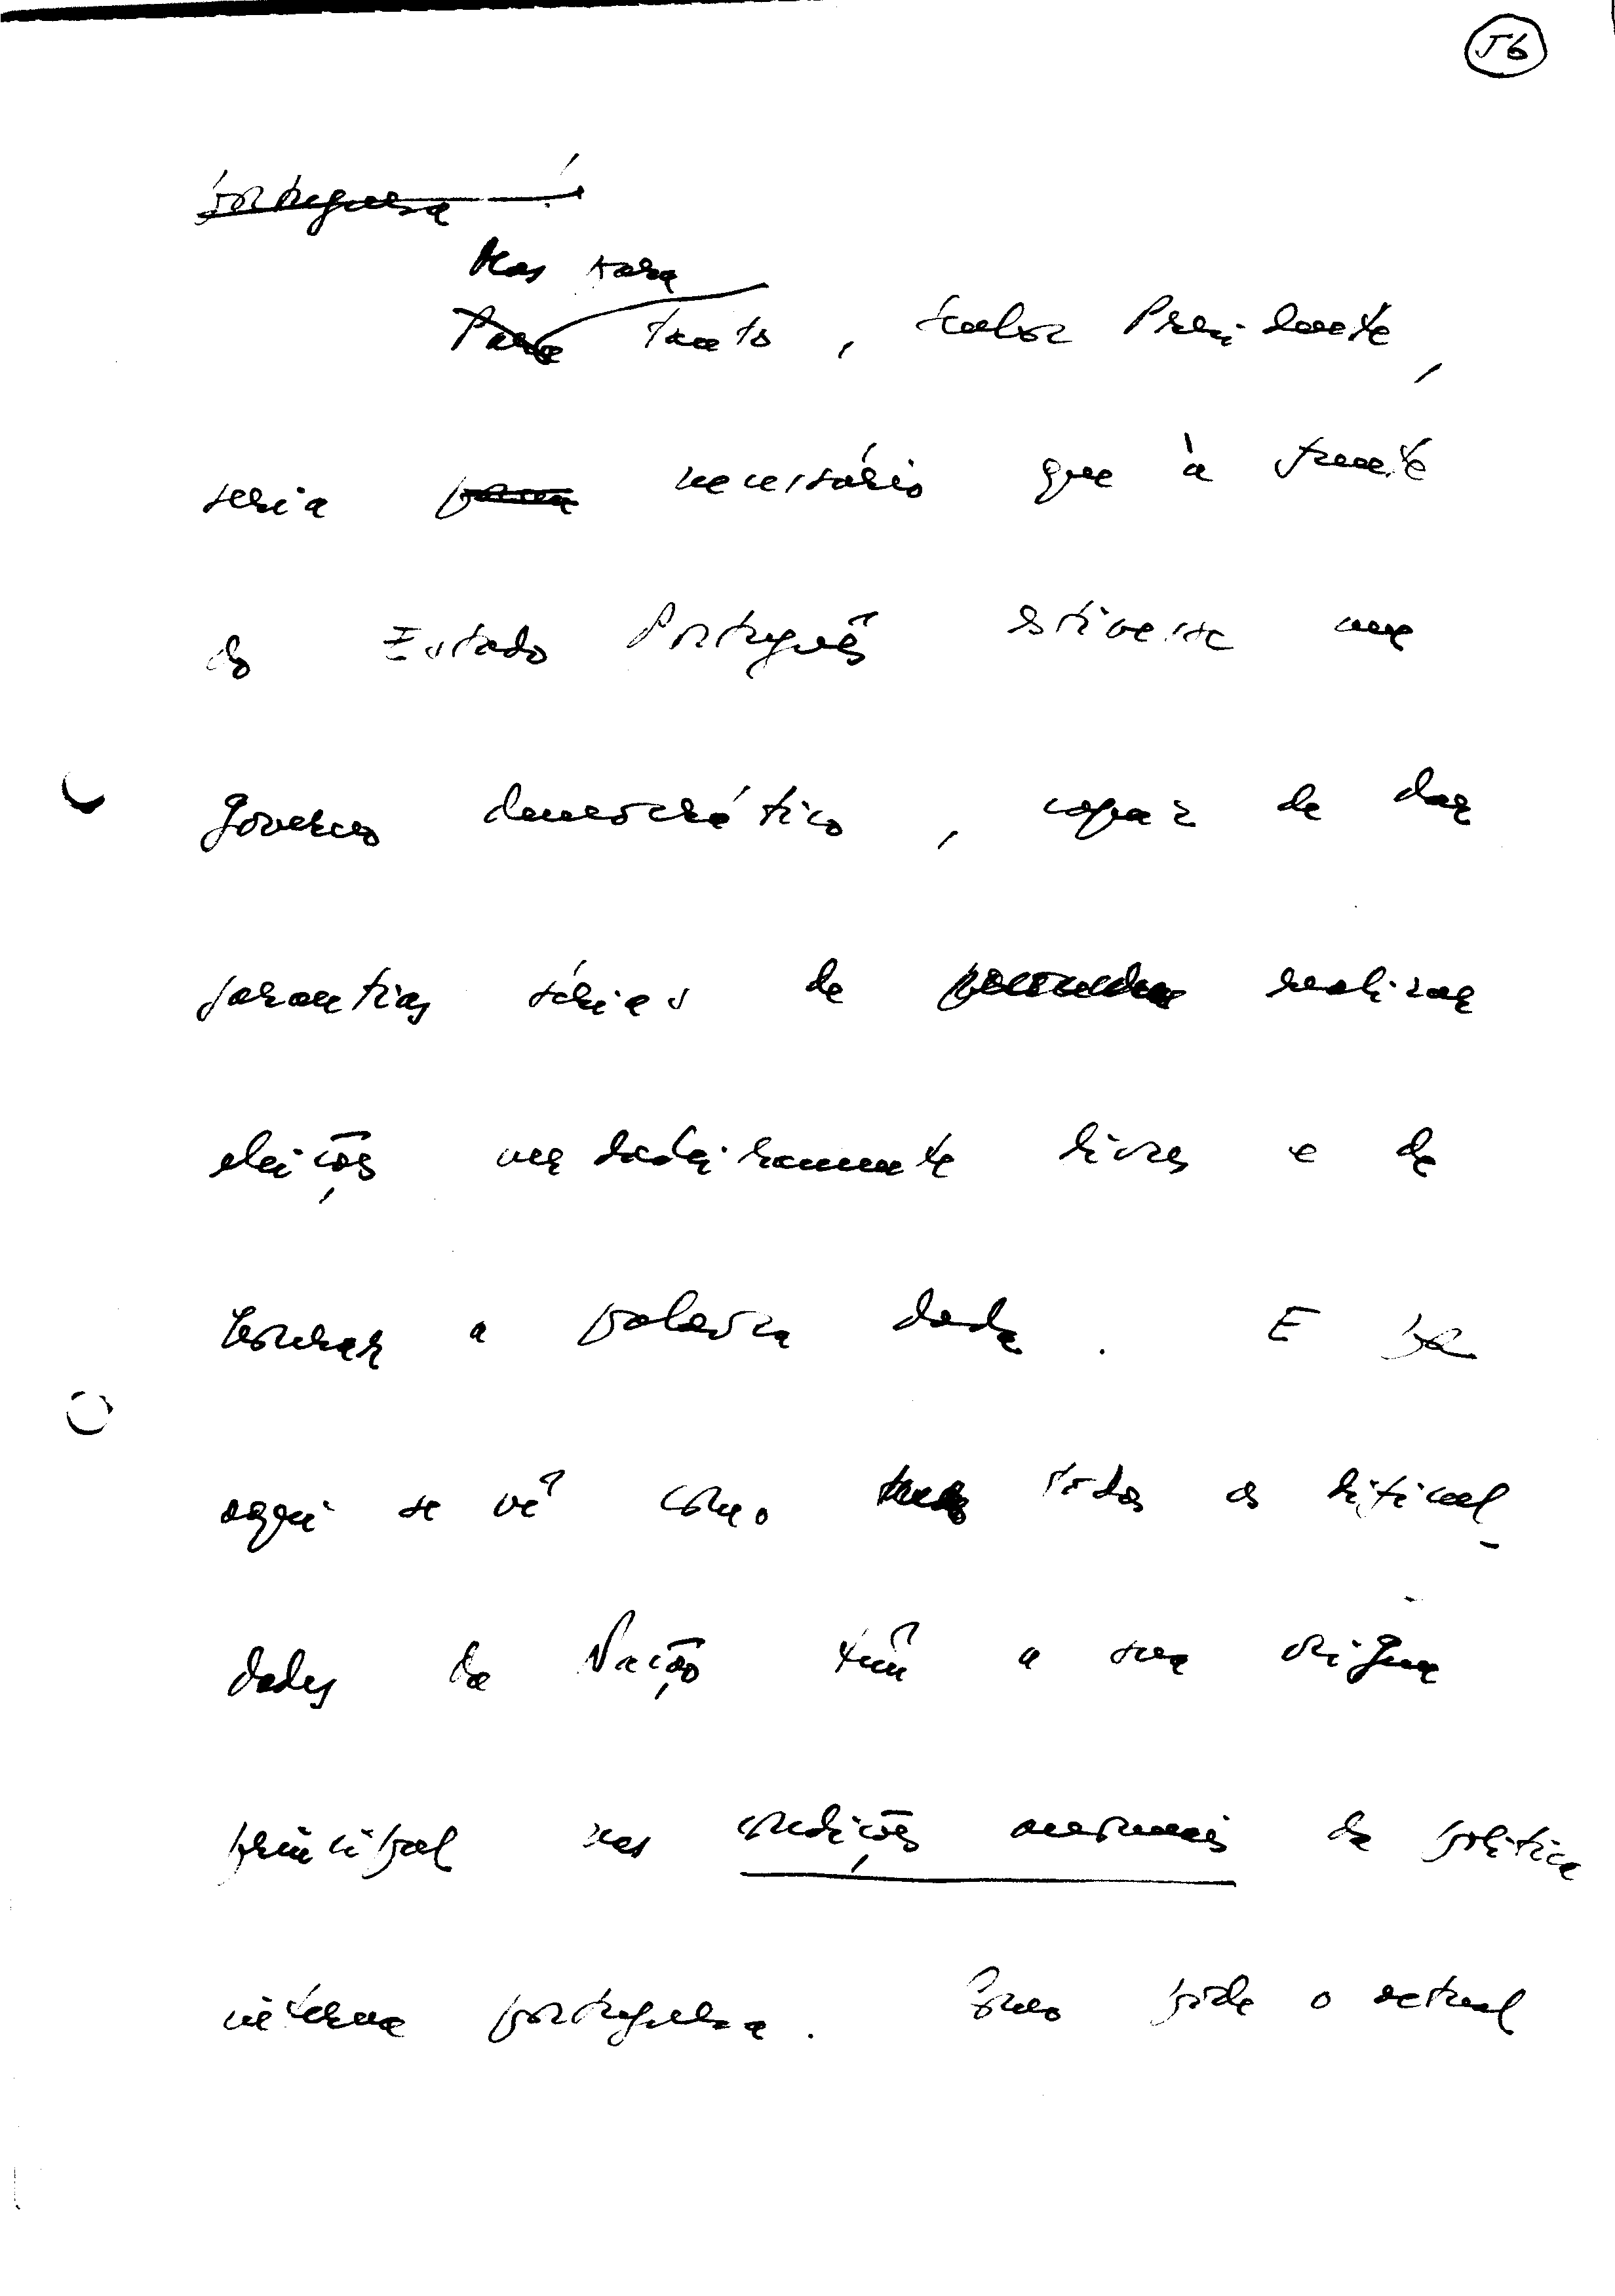 56
portuguesa !
Mas para
Para tanto, senhor Presidente,
seria para necessário que à frente
do Estado Português estivesse um
Governo democrático, capaz de dar
garantias sérias de realizar
eleições verdadeiramente livres e de
honrar a palavra dada. E por
aqui se vê como todas as dificul-
dades da Nação têm a sua origem
principal nas condições anormais da política
interna portuguesa. Como pode o actual